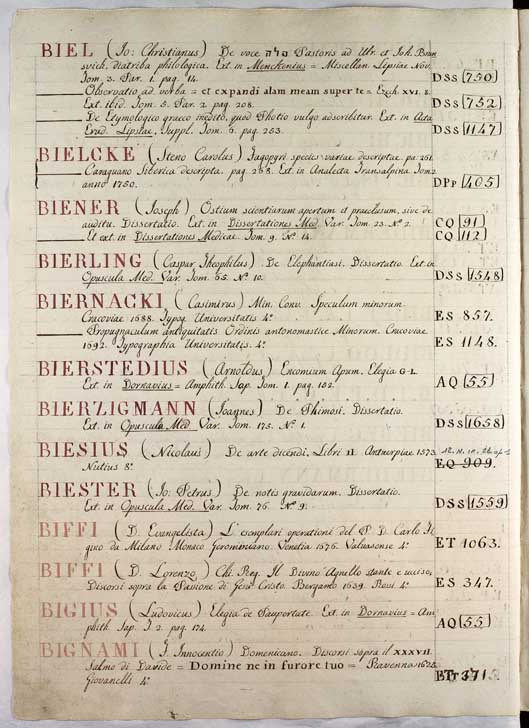 BIEL (Jo: Christianus) De voce סלה Pastoris ad Ulr. et Joh. Brun
svich. diatriba philologica. Ext. in Menckenius = Miscellan. Lipsiae Nov.
Tom. 3. Par. 1. pag. 14. DSs 750
Observatio ad verba = et expandi alam meam super te = Ezech. XVI. 8.
Ext. ibid. Tom. 5. Par. 2. pag. 208. DSs 752
De Etymologico graeco inedito, quod Photio vulgo adscribitur. Ext. in Acta
Erud. Lipsiae, Suppl. Tom. 6. pag. 253. DSs 1147
BIELCKE (Steno Carolus) Jagopyri species variae descriptae. pa: 261.
Caraguano Siberica descripta. pag. 268. Ext. in Analecta Transalpina. Tom. 2.
anno 1750. DPp 405
BIENER (Joseph) Ostium scientiarum apertum et praeclusum, sive de
auditu. Dissertatio. Ext. in Dissertationes Med. Var. Tom. 23. Nº 2. CQ 91
Et ext. in Dissertationes Medicae. Tom. 9. Nº 14. CQ 112
BIERLING (Caspar Theophilus) De Elephantiasi. Dissertatio. Ext. in
Opuscula Med. Var. Tom. 65. Nº 10. DSs 1548
BIERNACKI (Casimirus) Min. Conv. Speculum minorum.
Cracoviae 1688. Typog. Universitatis 4º ES 857.
Propugnaculum antiquitatis Ordinis antonomastice Minorum. Cracoviae
1692. Typographia Universitatis. 4º ES 1148.
BIERSTEDIUS (Arnoldus) Encomium Apum. Elegia G-L.
Ext. in Dornavius = Amphith. Sap. Tom. 1. pag. 152. AQ 55
BIERZIGMANN (Joannes) De Phimosi. Dissertatio.
Ext. in Opuscula Med. Var. Tom. 175. Nº 1. DSs 1658
BIESIUS (Nicolaus) De arte dicendi, Libri II. Antverpiae 1573.
Nutius 8º EQ 909.
BIESTER (Jo: Petrus) De notis gravidarum. Dissertatio.
Ext. in Opuscula Med. Var. Tom. 76. Nº 9. DSs 1559
BIFFI (D. Evangelista) L'esemplari operationi del P. D. Carlo Fi
gino da Milano Monaco Gerominiano. Venetia 1576. Valvasense 4º ET 1063.
BIFFI (D. Lorenzo) Chi. Reg. Il Divino Agnello stante e ucciso,
Discorsi sopra la Passione di Gesù Cristo. Bergamo 1639. Rossi 4º ES 347.
BIGIUS (Ludovicus) Elegia de Paupertate. Ext. in Dornavius = Am
phith. Sap. T. 2. pag. 174. AQ 55
BIGNAMI (F. Innocentio) Domenicano. Discorsi sopra il XXXVII.
Salmo di Davide = Domine ne in furore tuo = Ravenna 1625.
Giovanelli 4º